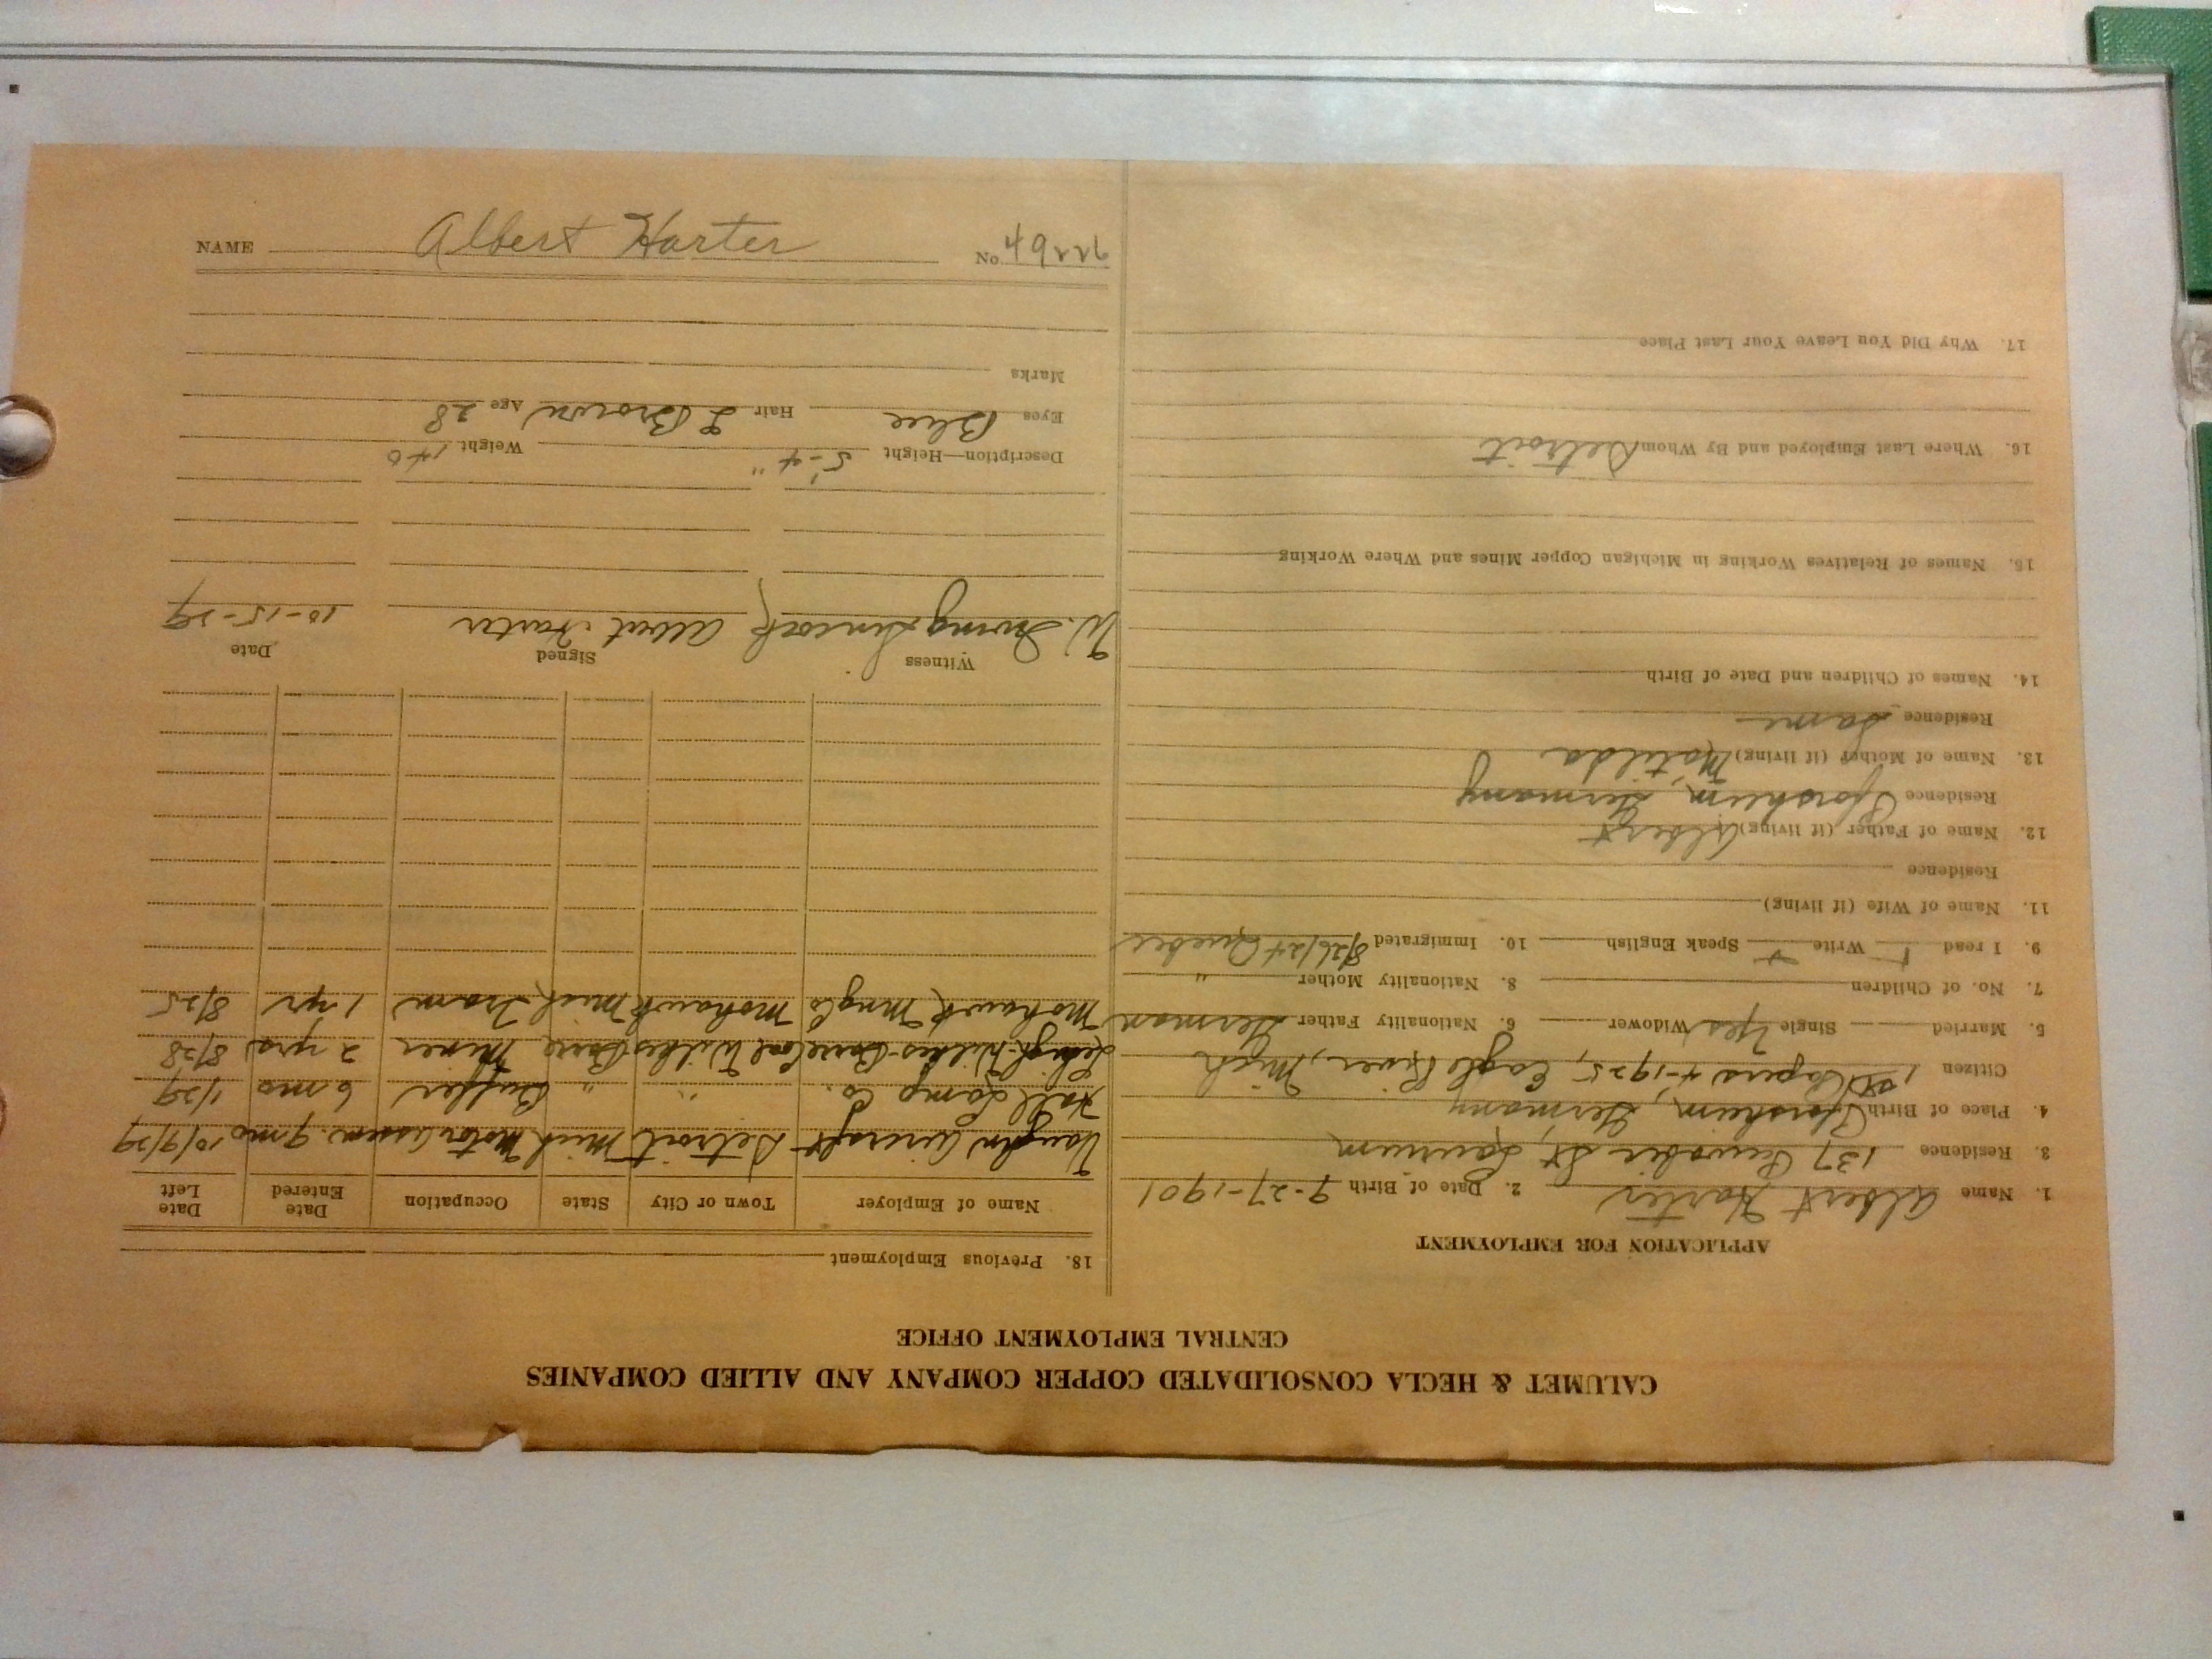 CALUMET & HECLA CONSOLIDATED COPPER COMPANY AND ALLIED COMPANIES
CENTRAL EMPLOYMENT OFFICE
APPLICATION FOR EMPLOYMENT
1. Name Albert Harter 2. Date of Birth 9-27-1901
3. Residence 137 Pewabic St, Laurium
4. Place of Birth Pforsheim, Germany
Citizen 1st Papers 4-1925, Eagle River, Mich
5. Married Single Yes Widower 6. Nationality Father German
7. No. of Children 8. Nationality Mother "
9. I read Write Speak English 10. Immigrated 8/26/24 Quebec
11. Name of Wife (if living)
Residence
12. Name of Father (if living) Albert
Residence Pforsheim, Germany
13. Name of Mother (if living) Matilda
Residence Same
14. Names of Children and Date of Birth
15. Names of Relatives Working in Michigan Copper Mines and Where Working
16. Where Last Employed and By Whom Detroit
17. Why Did You Leave Your Last Place
18. Previous Employment
Name of Employer Town or City State Occupation Date Entered Date Left
Aircraft Detroit Mich Motor Assem. 9 mo 10/9/29
Hall Lamp Co. " " Buffer 6 mo 1/29
Lehigh-Wilkes-Barre Coal Wilkes Barre Miner 2 yrs 8/28
Mohawk Mng Co Mohawk Mich Tram 1 yr 8/25
Witness Signed Date
W. Irving Albert Harter 10-15-29
Description—Height 5'-4" Weight 140
Eyes Blue Hair L Brown Age 28
Marks
NAME Albert Harter No. 49226